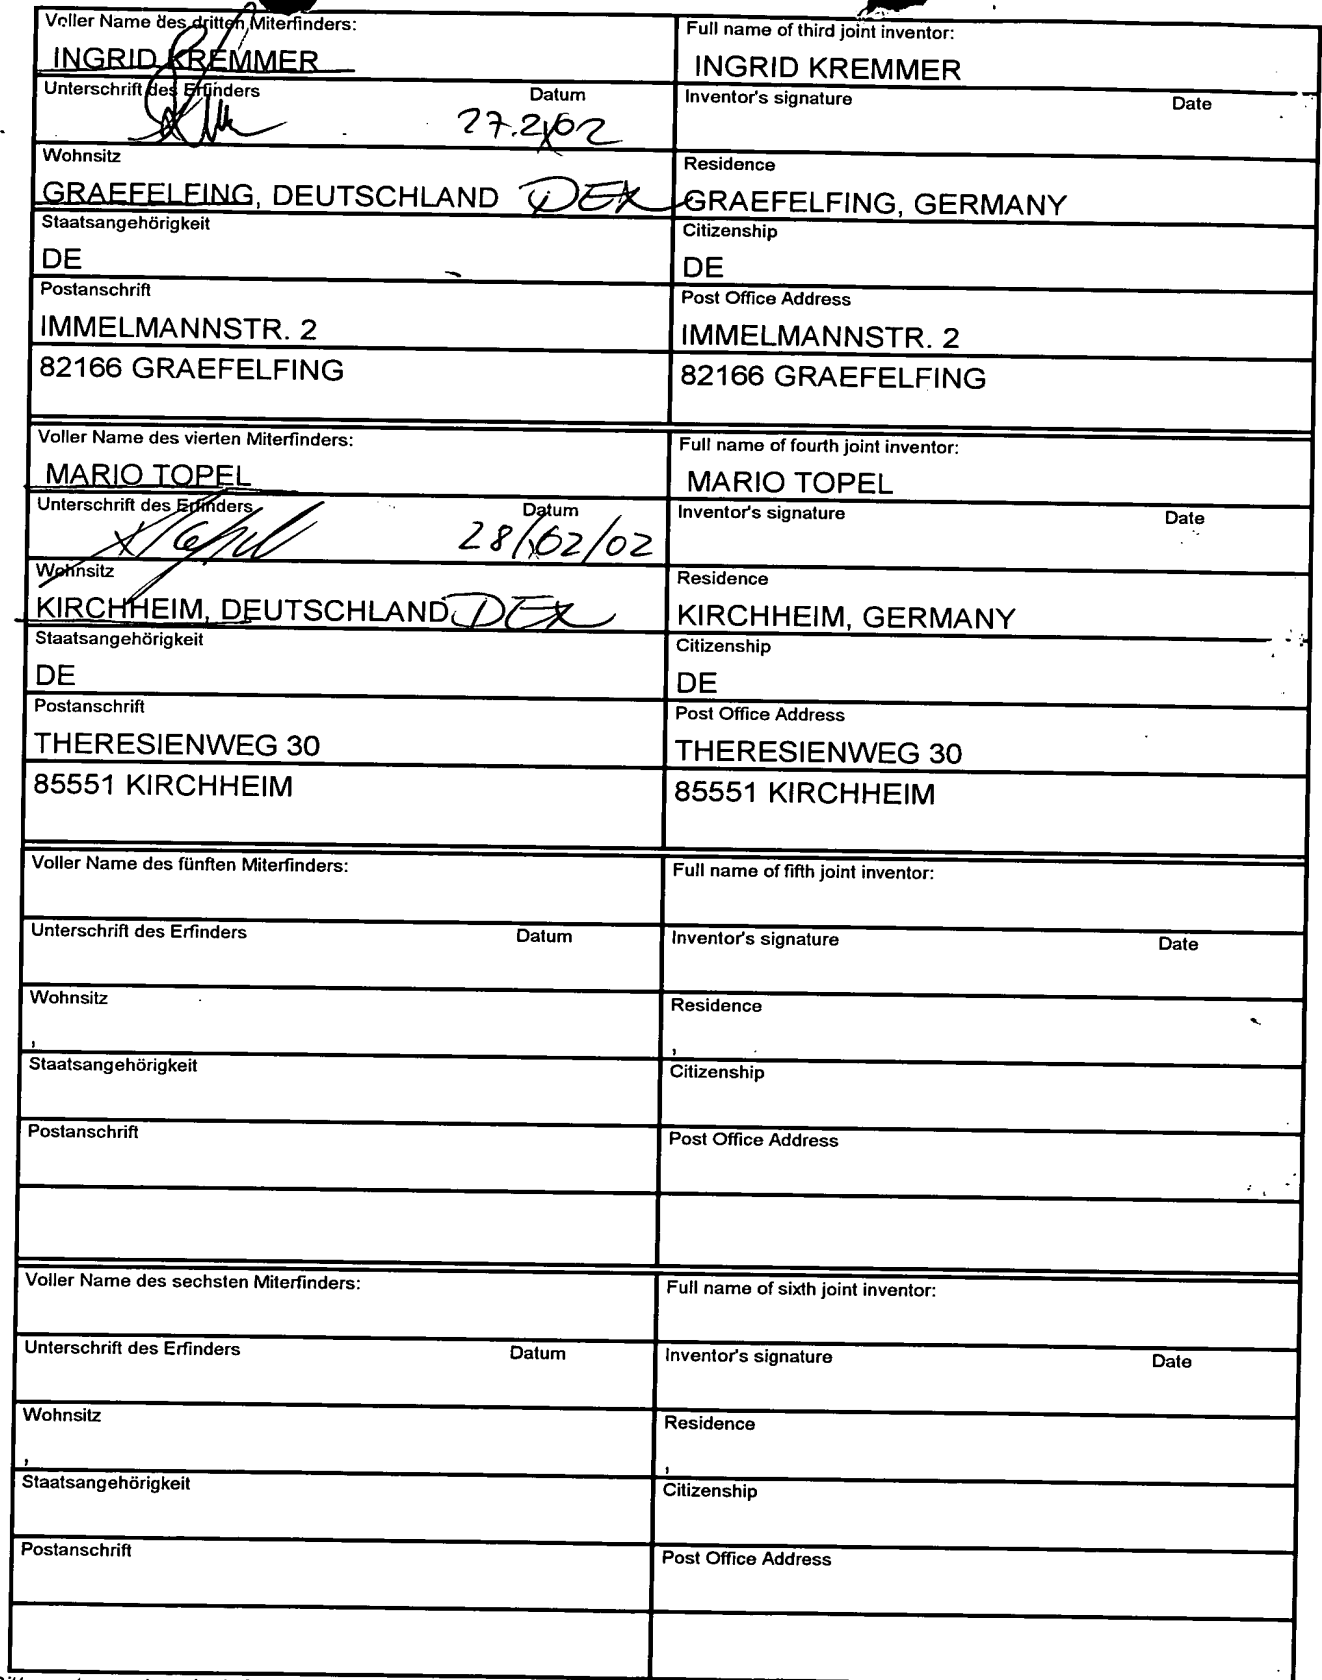 Voller Name des dritten Miterfinders:
INGRID KREMMER
Full name of third joint inventor:
INGRID KREMMER
Unterschrift des Erfinders Datum
27.2.02
Inventor's signature Date
Wohnsitz
GRAEFELFING, DEUTSCHLAND DEX
Residence
GRAEFELFING, GERMANY
Staatsangehörigkeit
DE
Citizenship
DE
Postanschrift
IMMELMANNSTR. 2
Post Office Address
IMMELMANNSTR. 2
82166 GRAEFELFING
82166 GRAEFELFING
Voller Name des vierten Miterfinders:
MARIO TOPEL
Full name of fourth joint inventor:
MARIO TOPEL
Unterschrift des Erfinders Datum
28/02/02
Inventor's signature Date
Wohnsitz
KIRCHHEIM, DEUTSCHLAND DEX
Residence
KIRCHHEIM, GERMANY
Staatsangehörigkeit
DE
Citizenship
DE
Postanschrift
THERESIENWEG 30
Post Office Address
THERESIENWEG 30
85551 KIRCHHEIM
85551 KIRCHHEIM
Voller Name des fünften Miterfinders:
Full name of fifth joint inventor:
Unterschrift des Erfinders Datum
Inventor's signature Date
Wohnsitz
,
Residence
,
Staatsangehörigkeit
Citizenship
Postanschrift
Post Office Address
Voller Name des sechsten Miterfinders:
Full name of sixth joint inventor:
Unterschrift des Erfinders Datum
Inventor's signature Date
Wohnsitz
,
Residence
,
Staatsangehörigkeit
Citizenship
Postanschrift
Post Office Address